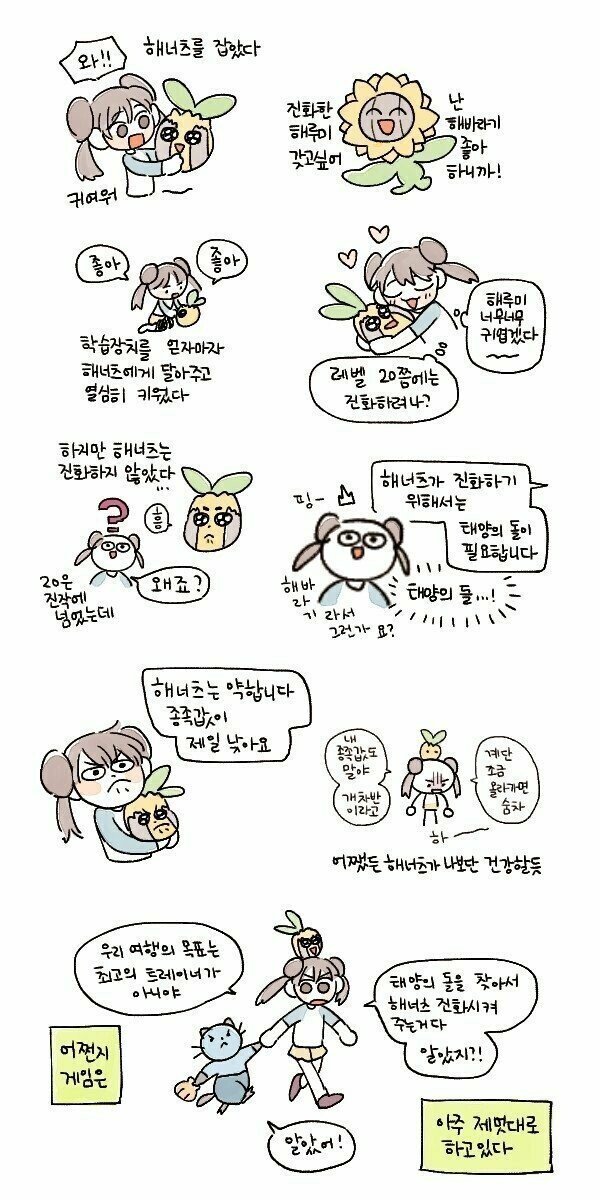 와!!
해너츠를 잡았다
귀여워
진화한
해루미
갖고싶어
난
해바라기
좋아
하니까!
좋아
좋아
학습장치를 얻자마자
해너츠에게 달아주고
열심히 키웠다
해루미
너무너무
귀엽겠다
레벨 20쯤에는
진화하려나?
하지만 해너츠는
진화하지 않았다
...
?
흠
왜죠?
20은
진작에
넘었는데
핑-
해너츠가 진화하기
위해서는
태양의 돌이
필요합니다
태양의 돌...!
해바
라
기 라서
그런가 요?
해너츠는 약합니다
종족값이
제일 낮아요
내
종족값도
말야
개차반
이라고
계단
조금
올라가면
숨차
하
어쨌든 해너츠가 나보단 건강할듯
우리 여행의 목표는
최고의 트레이너가
아니야
태양의 돌을 찾아서
해너츠 진화시켜
주는거다
알았지?!
어쩐지
게임은
알았어!
아주 제멋대로
하고있다